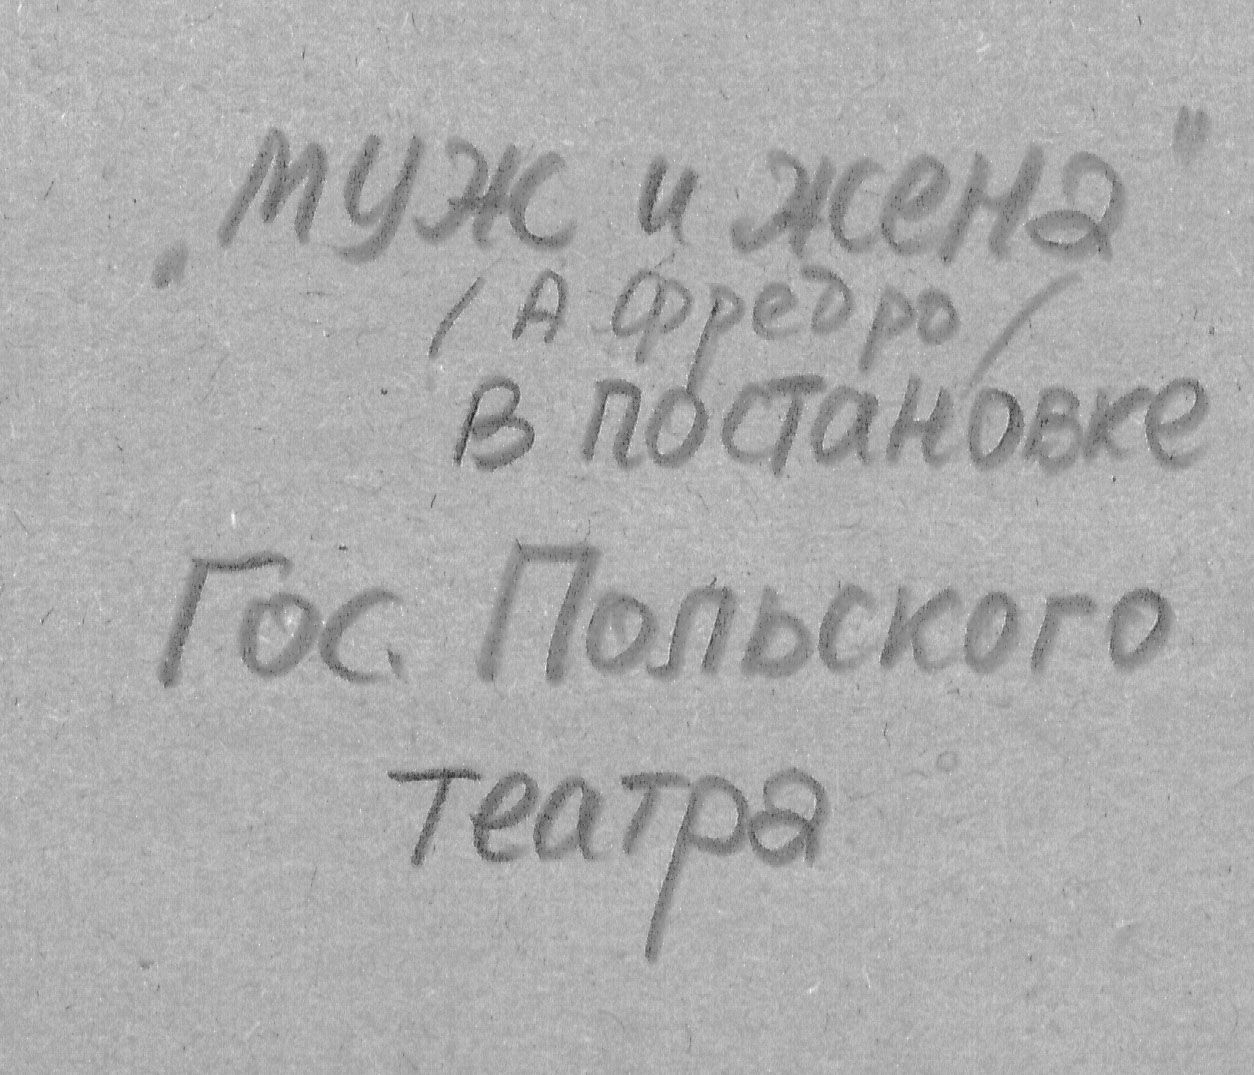 "муж и жена"
/А Фредро/
в постановке
Гос. Польского
театра